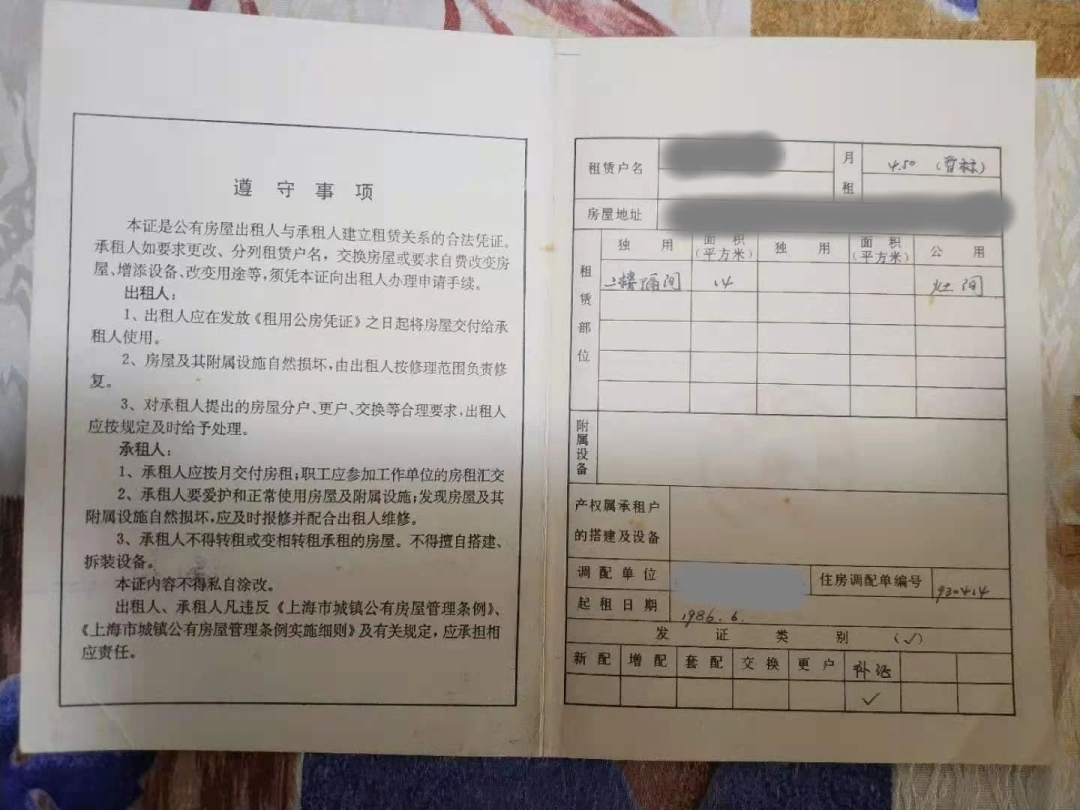 遵守事项
本证是公有房屋出租人与承租人建立租赁关系的合法凭证。
承租人如要求更改、分列租赁户名，交换房屋或要求自费改变房
屋、增添设备、改变用途等，须凭本证向出租人办理申请手续。
出租人：
1、出租人应在发放《租用公房凭证》之日起将房屋交付给承
租人使用。
2、房屋及其附属设施自然损坏，由出租人按修理范围负责修
复。
3、对承租人提出的房屋分户、更户、交换等合理要求，出租人
应按规定及时给予处理。
承租人：
1、承租人应按月交付房租；职工应参加工作单位的房租汇交
2、承租人要爱护和正常使用房屋及附属设施；发现房屋及其
附属设施自然损坏，应及时报修并配合出租人维修。
3、承租人不得转租或变相转租承租的房屋。不得擅自搭建、
拆装设备。
本证内容不得私自涂改。
出租人、承租人凡违反《上海市城镇公有房屋管理条例》、
《上海市城镇公有房屋管理条例实施细则》及有关规定，应承担相
应责任。
租赁户名 月租 4.50
房屋地址
租赁部位 独用 面积（平方米） 独用 面积（平方米） 公用
二楼隔间 14 灶间
附属设备
产权属承租户
的搭建及设备
调配单位 住房调配单编号 930414
起租日期 1986.6.
发证类别（√）
新配 增配 套配 交换 更户
√